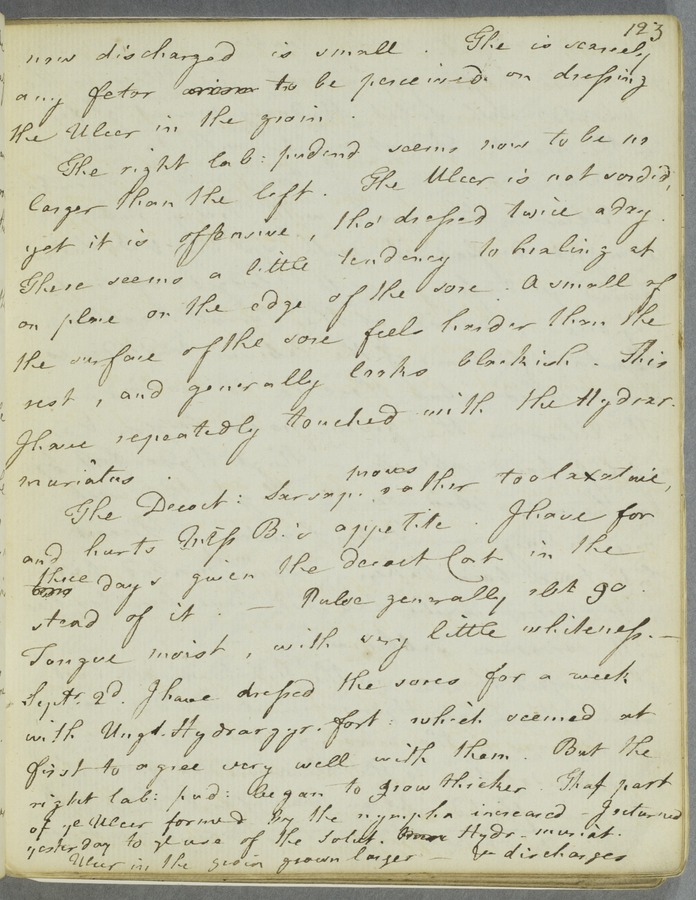 123
now discharged is small. The is scarcely
any fetor to be perceived on dressing
the Ulcer in the groin.
The right lab: pudend seems now to be no
larger than the left. The Ulcer is not sordid,
yet it is offensive, tho' dressed twice a day.
There seems a little tendency to healing at
on place on the edge of the sore. A small of
the surface of the sore feels harder than the
rest, and generally looks blackish. This
I have repeatedly touched with the Hydrar.
muriatus.
The Decoct: Sarsap. proves rather too laxative,
and hurts Miss B.'s appetite. I have for
three days given the decoct Cort in the
stead of it. — Pulse generally abt 90.
Tongue moist, with very little whiteness. —
Septr. 2d. I have dressed the sores for a week
with Ungt. Hydrargyr. fort: which seemed at
first to agree very well with them. But the
right lab: pud: began to grow thicker. That part
of ye Ulcer formed by the nympha increased – I returned
yesterday to ye use of the Solut. Hydr. muriat.
Ulcer in the groin grown larger — & discharges